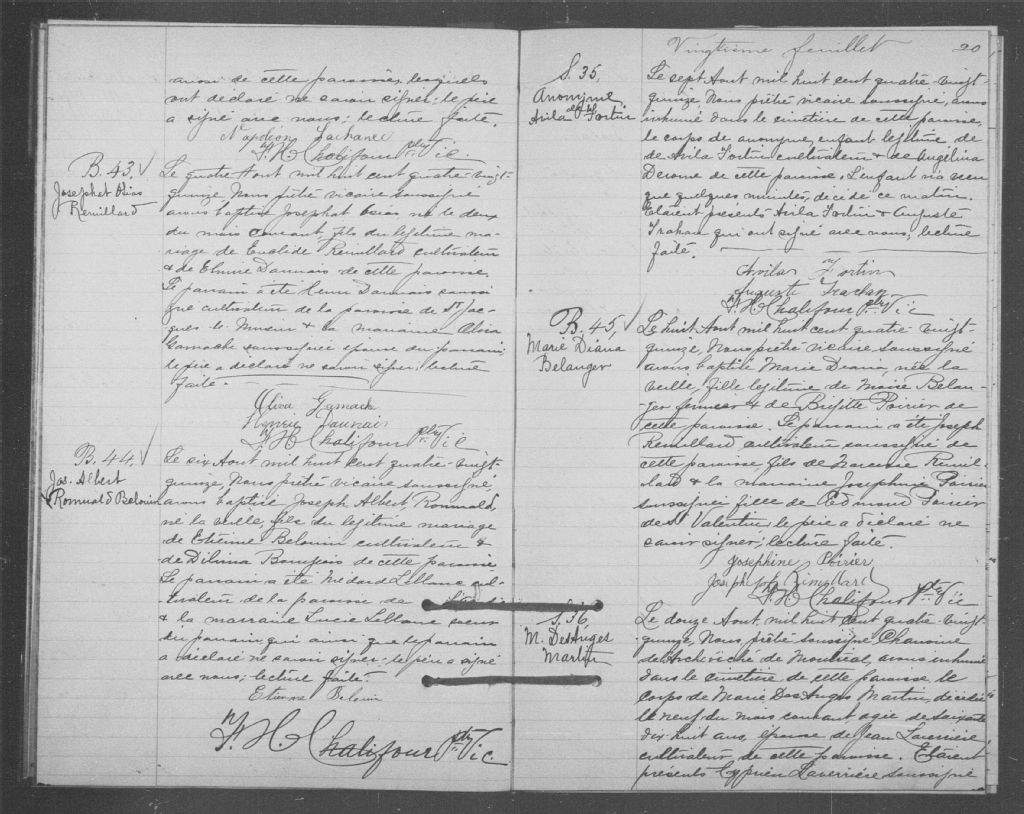 aussi de cette paroisse, lesquels
ont déclaré ne savoir signer; le père
a signé avec nous; lecture faite.
Napoléon Lachance
F. H. Chalifour ptre Vic.
B. 43.
Josephat Osias
Remillard
Le quatre Aout mil huit cent quatre-vingt-
quinze, Nous prêtre vicaire soussigné
avons baptisé Josephat Osias, né le deux
du mois courant, fils du légitime ma-
riage de Euclide Remillard cultivateur
& de Elmire Daunais de cette paroisse.
Le parrain a été Henri Daunais soussi-
gné cultivateur de la paroisse de St Jac-
ques le Mineur & la marraine Oliva
Gamache soussignée épouse du parrain;
le père a déclaré ne savoir signer; lecture
faite.
Oliva Gamache
Henri Daunais
F. H. Chalifour ptre Vic
B. 44.
Jos. Albert
Romuald Belouin
Le six Aout mil huit cent quatre-vingt-
quinze, Nous prêtre vicaire soussigné
avons baptisé Joseph Albert, Romuald,
né la veille, fils du légitime mariage
de Etienne Belouin cultivateur &
de Délima de cette paroisse
Le parrain a été Médard Leblanc cul-
tivateur de la paroisse de
& la marraine Lucie Leblanc soeur
du parrain, qui ainsi que le parrain
a déclaré ne savoir signer; le père a signé
avec nous; lecture faite.
Etienne Belouin
F. H. Chalifour ptre Vic.
Vingtième feuillet 20
S. 35,
Anonyme
Avila Fortin
Le sept Aout mil huit cent quatre-vingt-
quinze, Nous prêtre vicaire soussigné, avons
inhumé dans le cimetière de cette paroisse,
le corps de anonyme, enfant légitime de
de Avila Fortin cultivateur & de Angélina
Derome de cette paroisse. L'enfant n'a vécu
que quelques minutes, décédé ce matin.
Etaient présents Avila Fortin & Auguste
Trahan qui ont signé avec nous; lecture
faite.
Avila Fortin
Auguste Trahan
F. H. Chalifour ptre Vic
B. 45,
Marie Diana
Belanger
Le huit Aout mil huit cent quatre vingt-
quinze, Nous prêtre vicaire soussigné
avons baptisé Marie Diana, née la
veille, fille légitime de Moïse Belan-
ger fermier & de Brigitte Poirier de
cette paroisse. Le parrain a été Joseph
Remillard cultivateur soussigné de
cette paroisse fils de Narcisse Remil-
lard & la marraine Josephine Poirier
soussignée fille de Edmond Poirier
de St Valentin; le père a déclaré ne
savoir signer; lecture faite.
Josephine Poirier
Joseph Rimillard
F. H. Chalifour ptre Vic
S. 36,
M. DesAnges
Martin
Le douze Aout mil huit cent quatre-vingt-
quinze, Nous prêtre soussigné Chanoine
de Archevêché de Montréal, avons inhumé
dans le cimetière de cette paroisse le
corps de Marie Des Anges Martin, décédée
le neuf du mois courant agée de soixante
dix huit ans, épouse de Jean Laverrière,
cultivateur de cette paroisse. Etaient
présents Cyprien Laverrière soussigné